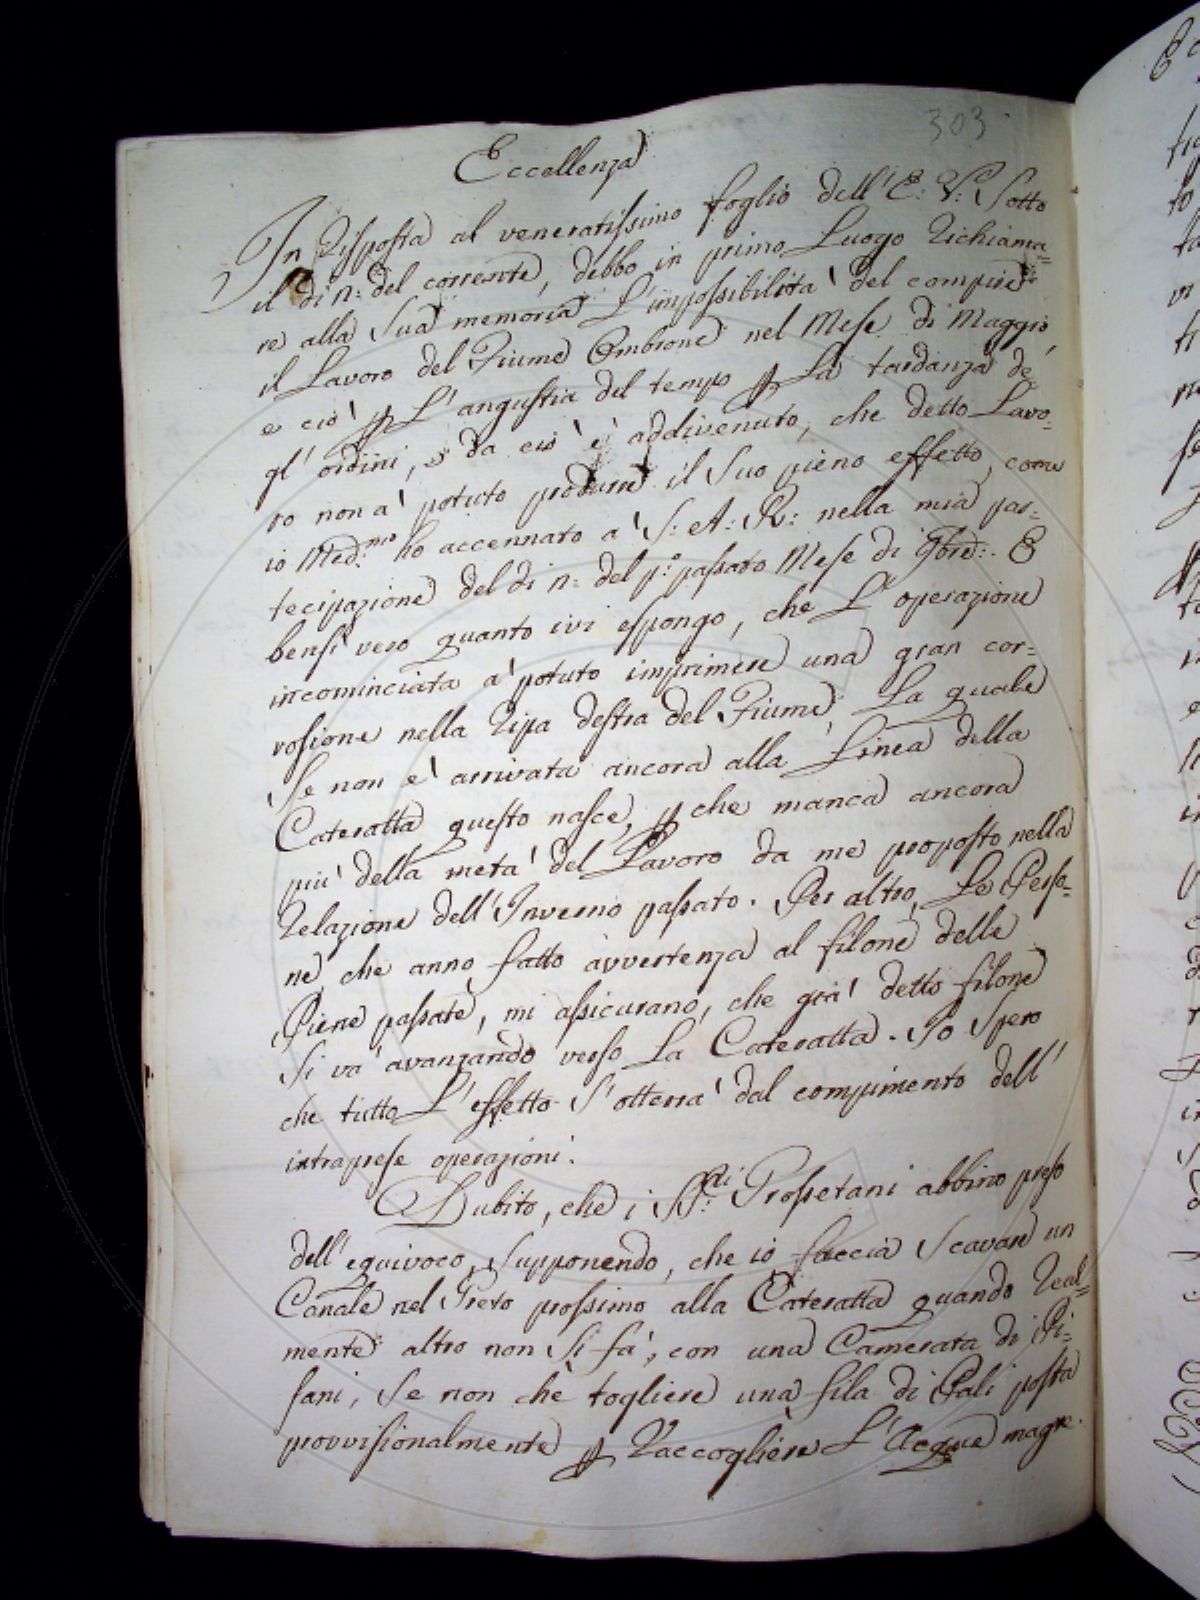 303
Eccellenza
In Risposta al veneratissimo foglio dell'E: V: Sotto
il di n: del corrente, debbo in primo Luogo Richiama=
re alla Sua memoria L'impossibilità del compire
il Lavoro del Fiume Ombrone nel Mese di Maggio,
e ciò p L'angustia del tempo p La tardanza de
gl'ordini, e da ciò è addivenuto, che detto Lavo=
ro non à potuto produrre il Suo pieno effetto, come
io Med.mo ho accennato a S: A: R: nella mia par=
tecipazione del di n: del p:o passato Mese di 9bre:. E
bensì vero quanto ivi espongo, che L'operazione
incominciata à potuto imprimere una gran cor=
rosione nella Ripa destra del Fiume La quale
Se non è arrivata ancora alla Linea della
Cateratta questo nasce, p che manca ancora
più della metà del Lavoro da me proposto nella
Relazione dell'Inverno passato. Per altro, Le Perso=
ne, che anno fatto avvertenza al filone delle
Piene passate, mi assicurano, che già detto filone
Si và avanzando verso La Cateratta. Io Spero
che tutto L'effetto S'otterrà dal compimento dell'
intraprese operazioni.
Dubito, che i SS:ri Grossetani abbino preso
dell'equivoco, Supponendo, che io faccia Scavare un
Canale nel Greto prossimo alla Cateratta quando Real=
mente altro non Si fà, con una Camerata di Pi=
sani, Se non che togliere una fila di Pali posta
provvisionalmente p Raccogliere L'Acque magre.